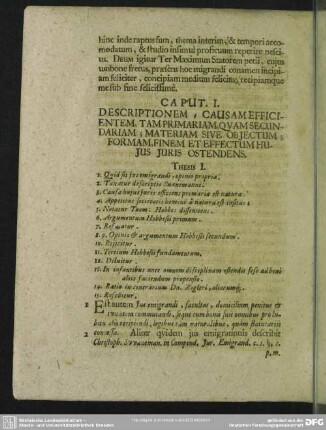 hinc inde raptus sum, thema interim, & tempori acco-
modatum, & studio insimul proficuum reperire nesci-
us. Deum igitur Ter Maximum Statorem petii, cujus
unibone fretus, præsens hoc migrandi conamen incipi-
am feliciter, concipiam medium felicius, recipiamque
me sub fine felicissimè.
CAPUT. I.
DESCRIPTIONEM, CAUSAM EFFICI-
ENTEM, TAM PRIMARIAM, QVAM SECUN-
DARIAM; MATERIAM SIVE OBJECTUM;
FORMAM, FINEM ET EFFECTUM HU-
JUS JURIS OSTENDENS.
THESIS I.
1. Quid sit jus emigrandi, opinio propria.
2. Taxatur descriptio
3. Causa hujus juris efficiens primaria est natura.
4. Appetitus societatis homini à natura est insitus;
5. Notatur Thom: Hobbes dissentiens.
6. Argumentum Hobbesii primum.
7. Refutatur.
8. 9. Opinio & argumentum Hobbesii secundum.
10. Rejicitur.
11. Tertium Hobbesii fundamentum.
12. Diluitur.
13. In infantibus ante omnem disciplinam ostendit sese ad boni
alios faciendum propensio.
14. Ratio in contrarium Dn. Zigleri, aliorumque.
15. Resolvitur.
1 Est autem Jus emigrandi, facultas, domicilium penitus &
commutandi, seque cum bonis suis omnibus pro lu-
bitu alio recipiendi, legibus tam naturalibus, quàm statutariis
2 concessa. Aliter quidem jus emigrationis describit
Christoph. à in Compend. Jur. Emigrand. c. 1. §. 1.
p. m.